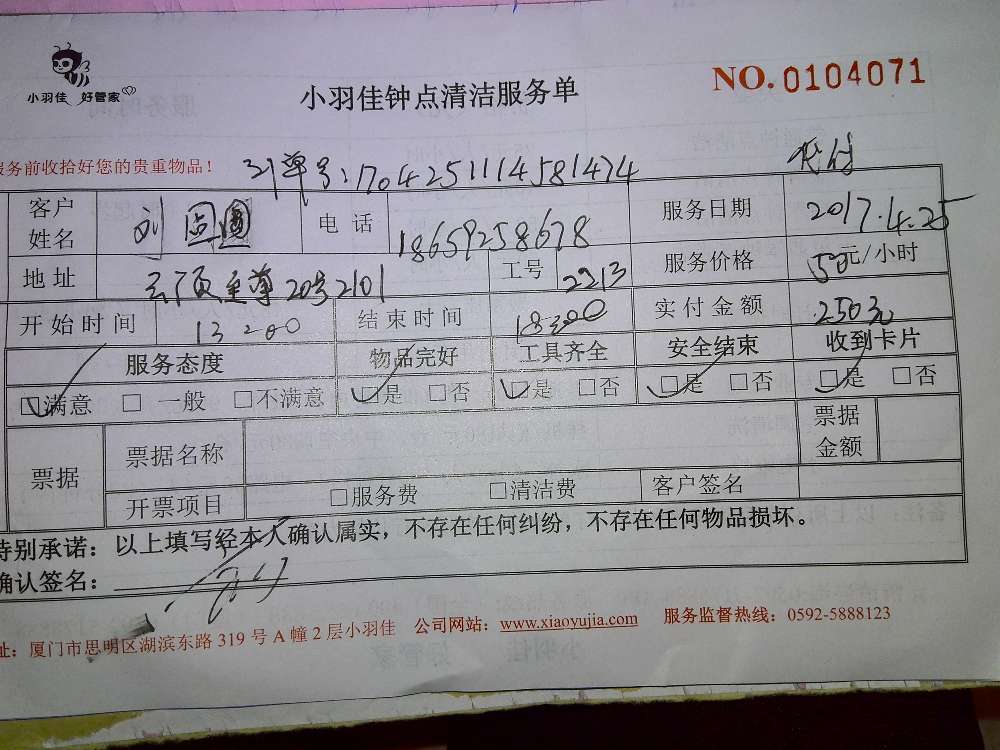 小羽佳 好管家
小羽佳钟点清洁服务单
NO. 0104071
服务前收拾好您的贵重物品！
订单号:1704251114581474
客户姓名 电话 18659258678 服务日期 2017.4.25
地址 云顶至尊20号2101 工号 2213 服务价格 50元/小时
开始时间 13:00 结束时间 18:00 实付金额 250元
服务态度 物品完好 工具齐全 安全结束 收到卡片
☑满意 □一般 □不满意 ☑是 □否 ☑是 □否 ☑是 □否 ☑是 □否
票据 票据名称 票据金额
开票项目 □服务费 □清洁费 客户签名
特别承诺：以上填写经本人确认属实，不存在任何纠纷，不存在任何物品损坏。
确认签名：
址：厦门市思明区湖滨东路 319 号 A 幢 2 层小羽佳 公司网站：www.xiaoyujia.com 服务监督热线：0592-5888123